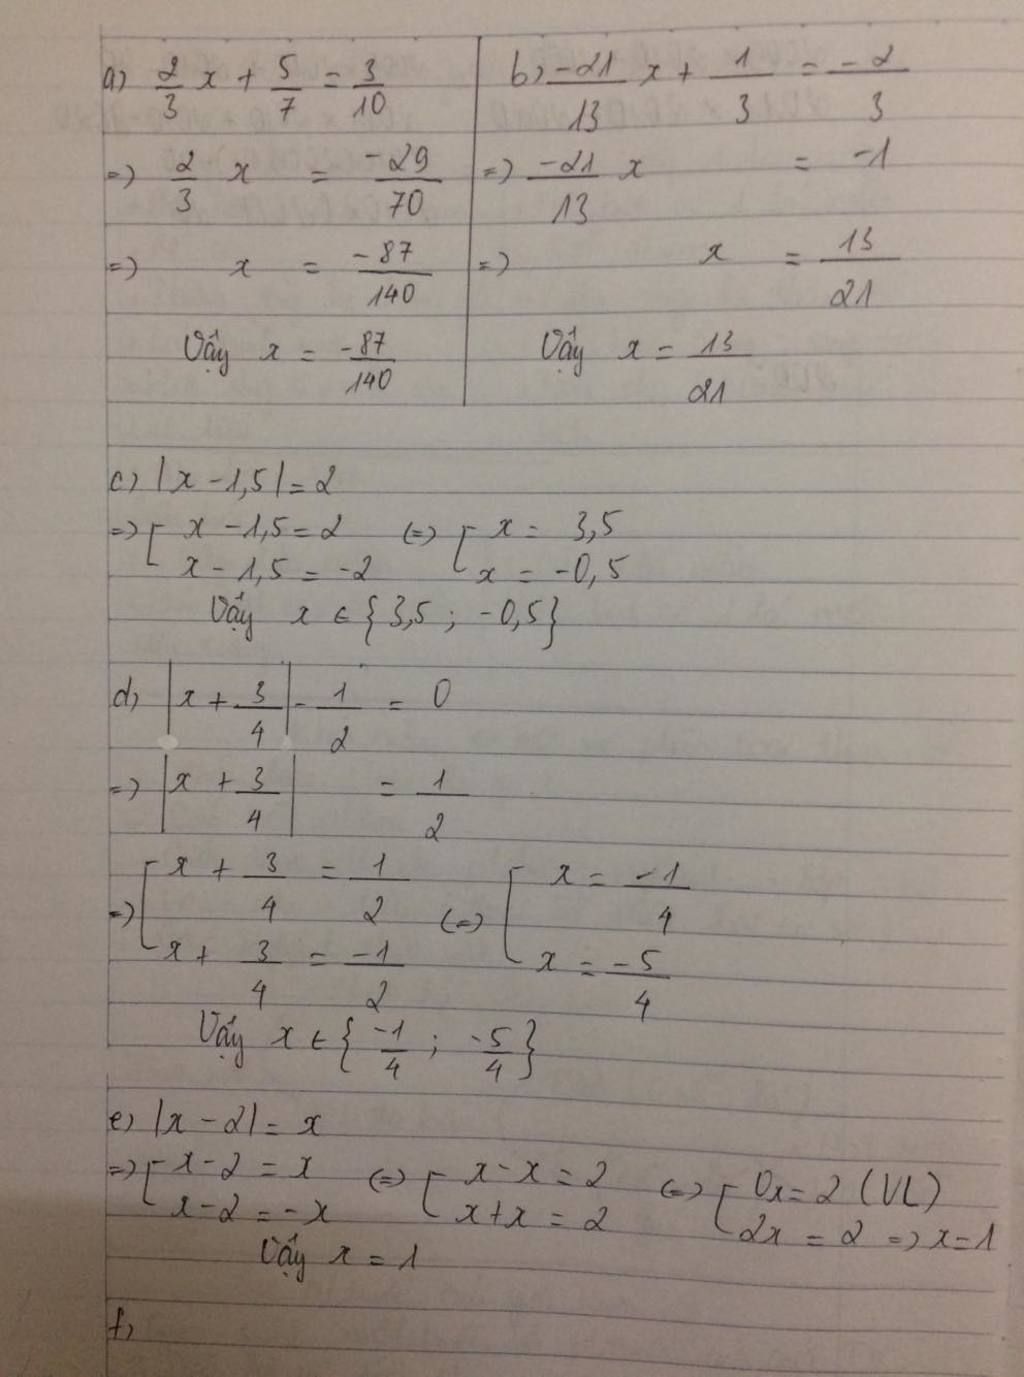 a) 2/3 x + 5/7 = 3/10
=) 2/3 x = -29/70
=) x = -87/140
Vậy x = -87/140
b) -21/13 x + 1/3 = -2/3
=) -21/13 x = -1
=) x = 13/21
Vậy x = 13/21
c) |x - 1,5| = 2
=) [ x - 1,5 = 2 (=) [ x = 3,5
x - 1,5 = -2 x = -0,5
Vậy x ∈ {3,5 ; -0,5}
d) |x + 3/4| - 1/2 = 0
=) |x + 3/4| = 1/2
=) [ x + 3/4 = 1/2 (=) [ x = -1/4
x + 3/4 = -1/2 x = -5/4
Vậy x ∈ {-1/4 ; -5/4}
e) |x - 2| = x
=) [ x - 2 = x (=) [ x - x = 2 (=) [ 0x = 2 (VL)
x - 2 = -x x + x = 2 2x = 2 =) x = 1
Vậy x = 1
f)